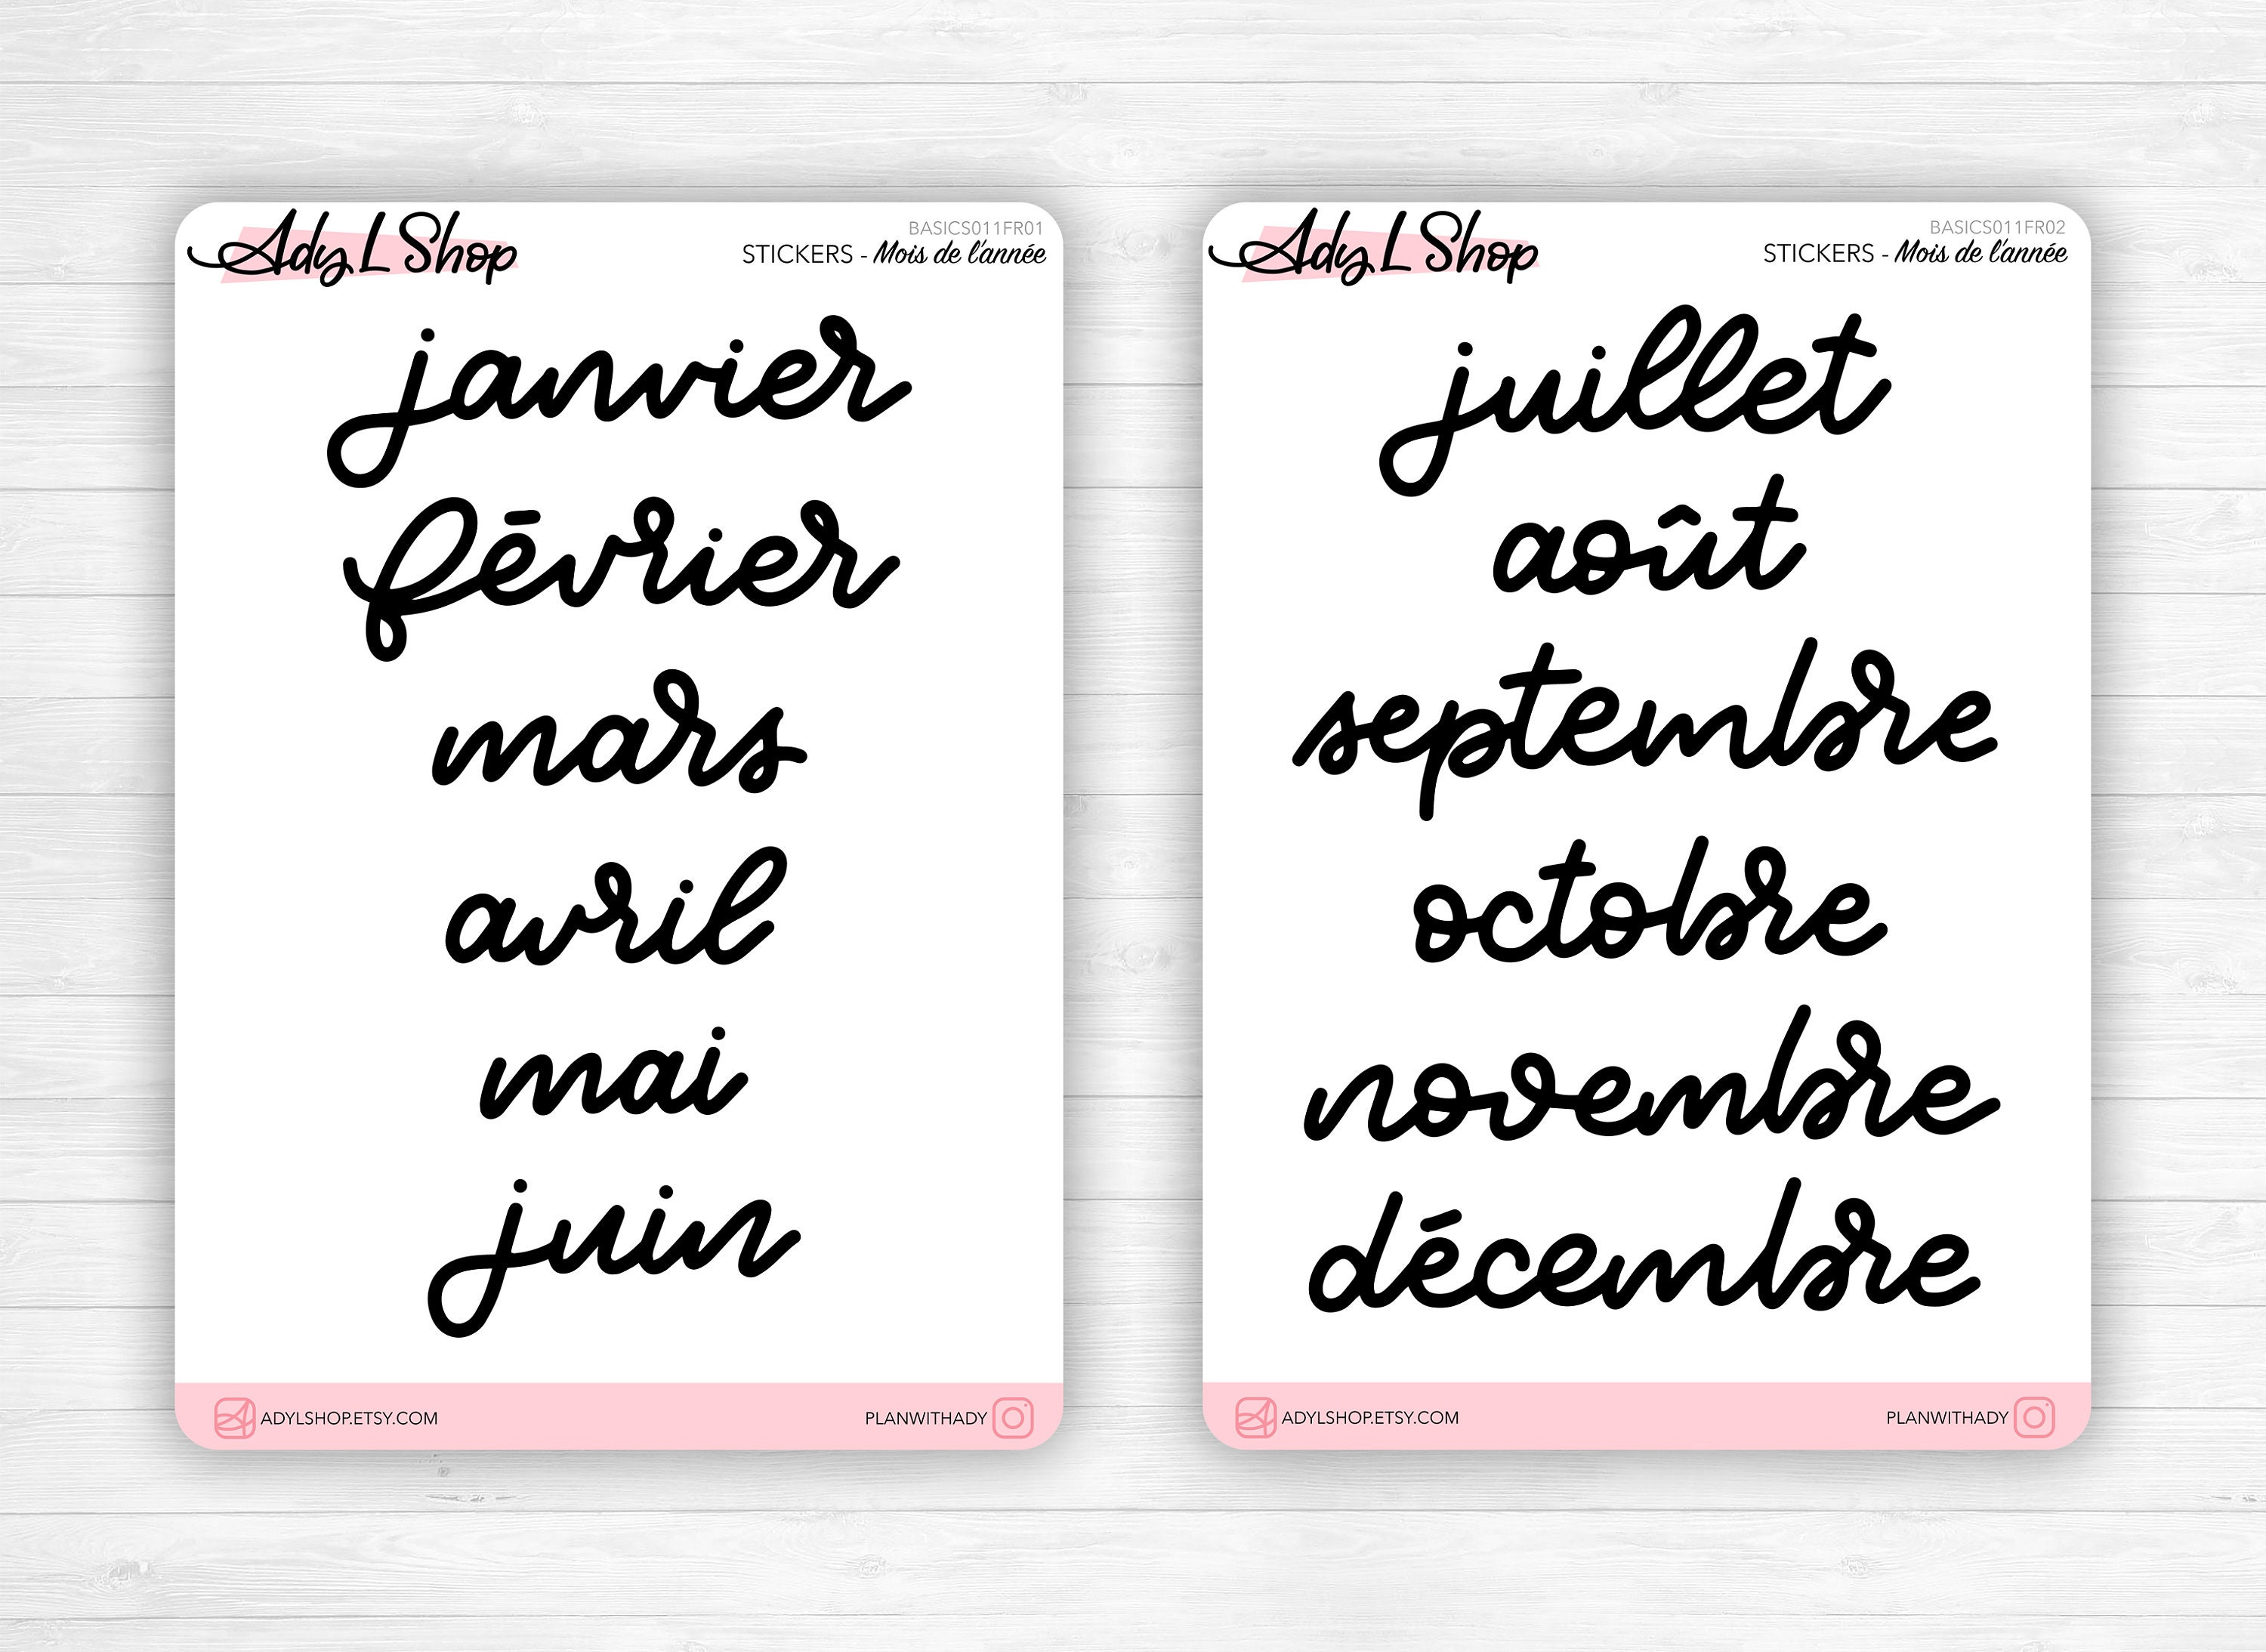 Ady L Shop
BASICS011FR01
STICKERS - Mois de l'année
janvier
février
mars
avril
mai
juin
ADYLSHOP.ETSY.COM
PLANWITHADY
Ady L Shop
BASICS011FR02
STICKERS - Mois de l'année
juillet
août
septembre
octobre
novembre
décembre
ADYLSHOP.ETSY.COM
PLANWITHADY